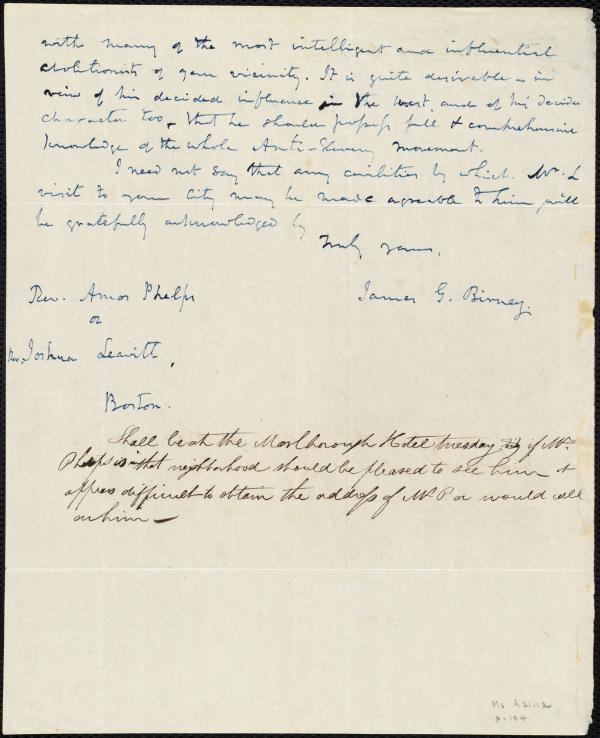 with many of the most intelligent and influential
abolitionists of your vicinity. It is quite desirable – in
view of his decided influence in the West, and of his decided
character too – that he should possess full & comprehensive
knowledge of the whole Anti-Slavery movement.
I need not say that any civilities by which Mr. L
visit to your City may be made agreable to him, will
be gratefully acknowledged by
Truly yours,
James G. Birney.
Rev. Amos Phelps
or
Rev. Joshua Leavitt,
Boston.
Shall be at the Marlborough Hotel tuesday if Mr.
Phelps is in that neighborhood should be pleased to see him it
appears difficult to obtain the address of Mr P or would call
on him —
Ms. A.21.12
p. 104